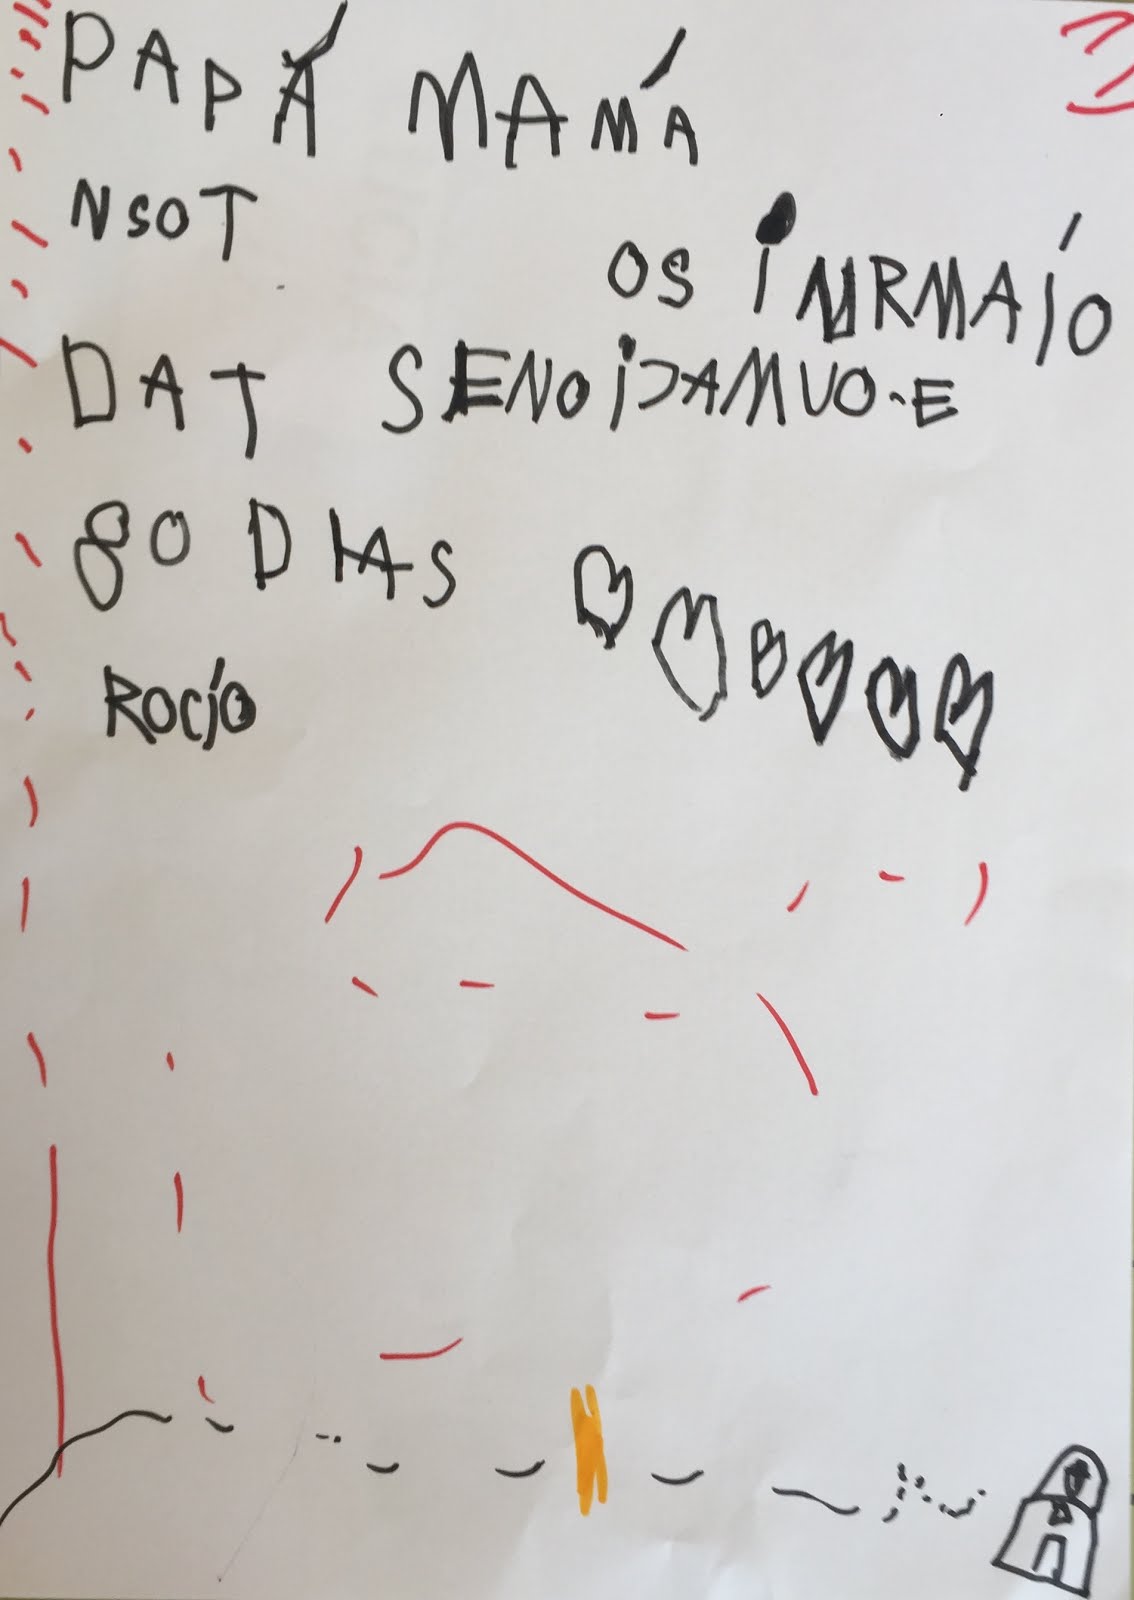 PAPÁ MAMÁ
NSOT OS INMRMAÍO
DAT SENOIJAMUO-E
80 DIAS
ROCÍO